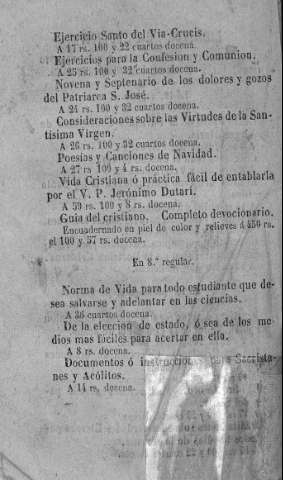 Ejercicio Santo del Via-Crucis.
A 17 rs. 100 y 22 cuartos docena.
Ejercicios para la Confesion y Comunion.
A 25 rs. 100 y 22 cuartos docena.
Novena y Septenario de los dolores y gozos
del Patriarca S. José.
A 24 rs. 100 y 32 cuartos docena.
Consideraciones sobre las Virtudes de la San-
tísima Virgen.
A 26 rs. 100 y 32 cuartos docena.
Poesías y Canciones de Navidad.
A 27 rs 100 y 4 rs. docena.
Vida Cristiana ó práctica fácil de entablarla
por el V. P. Jerónimo Dutari.
A 59 rs. 100 y 8 rs. docena.
Guia del cristiano. Completo devocionario.
Encuadernado en piel de color y relieves á 450 rs.
el 100 y 57 rs. docena.
En 8.º regular.
Norma de Vida para todo estudiante que de-
sea salvarse y adelantar en las ciencias.
A 36 cuartos docena.
De la eleccion de estado, ó sea de los me-
dios mas fáciles para acertar en ella.
A 8 rs. docena.
Documentos ó instrucciones para Sacrista-
nes y Acólitos.
A 14 rs. docena.